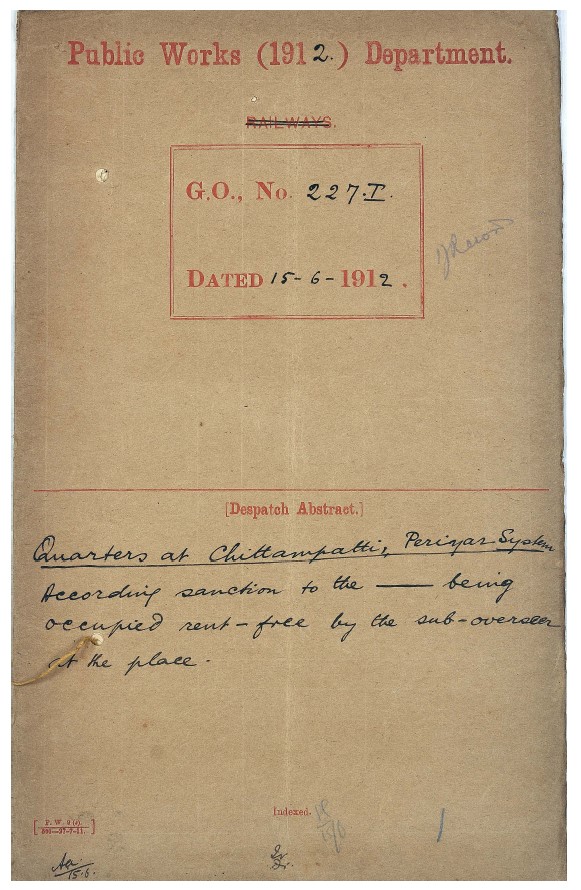 Public Works (1912.) Department.
RAILWAYS.
G.O., No. 227.I.
DATED 15-6-1912.
[Despatch Abstract.]
Quarters at Chittampatti, Periyar System
According sanction to the — being
occupied rent-free by the sub-overseer
at the place.
Indexed.
P. W. 9
15.6.